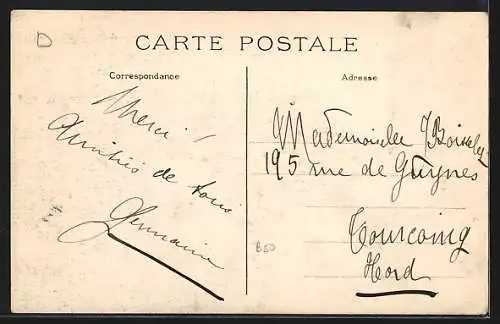 D
CARTE POSTALE
Correspondance
Merci !
Amitiés de tous
Germaine
Adresse
Mademoiselle J Boisely
195 rue de Guynes
Tourcoing
Nord
B50